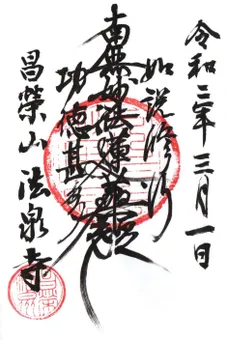 令和三年三月一日
如説修行
南無妙法蓮華経
功徳甚多
昌榮山法泉寺